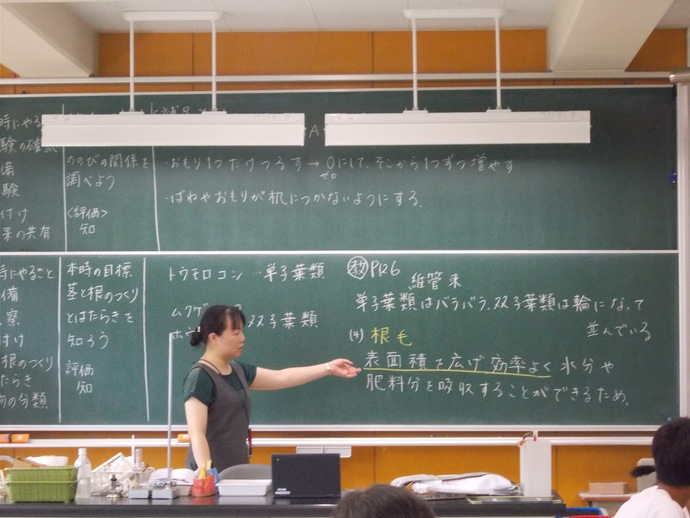 時にやる
験の確
備
験
付け
果の共有
ののびの関係を
調べよう
〈評価〉
知
A
・おもり1つだけつるす→0にして、そこから1つずつ増やす
ゼロ
・ばねやおもりが机につかないようにする。
時にやること
備
察
付け
根のつくり
たらき
の分類
本時の目標
茎と根のつくり
とはたらきを
知ろう
評価
知
トウモロコシ…単子葉類
ムクゲ
ホウ
双子葉類
P126
維管束
単子葉類はバラバラ、双子葉類は輪になって
並んでいる
(4) 根毛
表面積を広げ効率よく水分や
肥料分を吸収することができるため。